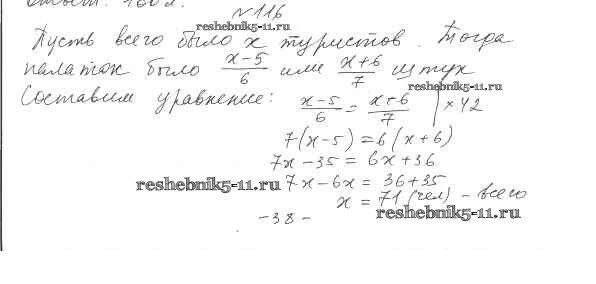 №116
reshebnik5-11.ru
Пусть всего было x туристов. Тогда
палаток было \frac{x-5}{6} или \frac{x+6}{7} штук
reshebnik5-11.ru
Составим уравнение: \frac{x-5}{6} = \frac{x+6}{7} | ×42
7(x-5) = 6(x+6)
7x-35 = 6x+36
reshebnik5-11.ru 7x-6x = 36+35
x = 71 (чел) - всего
-38- reshebnik5-11.ru